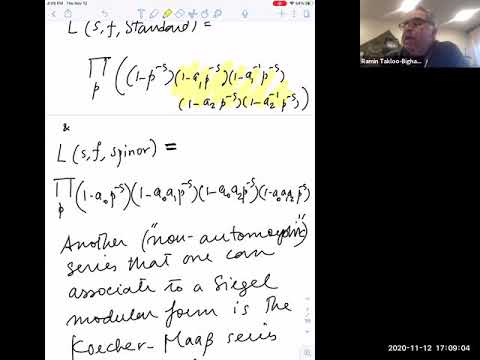 4:09 PM Thu Nov 12
54%
L(s,f,Standard)=
∏ₚ((1-p⁻ˢ)(1-a₁p⁻ˢ)(1-a₁⁻¹p⁻ˢ)
(1-a₂p⁻ˢ)(1-a₂⁻¹p⁻ˢ))
&
L(s,f,spinor)=
∏ₚ(1-a₀p⁻ˢ)(1-a₀a₁p⁻ˢ)(1-a₀a₂p⁻ˢ)(1-a₀a₁a₂p⁻ˢ)
Another ("non-automorphic")
series that one can
associate to a Siegel
modular form is the
Koecher-Maaß series
Ramin Takloo-Bigha...
2020-11-12 17:09:04